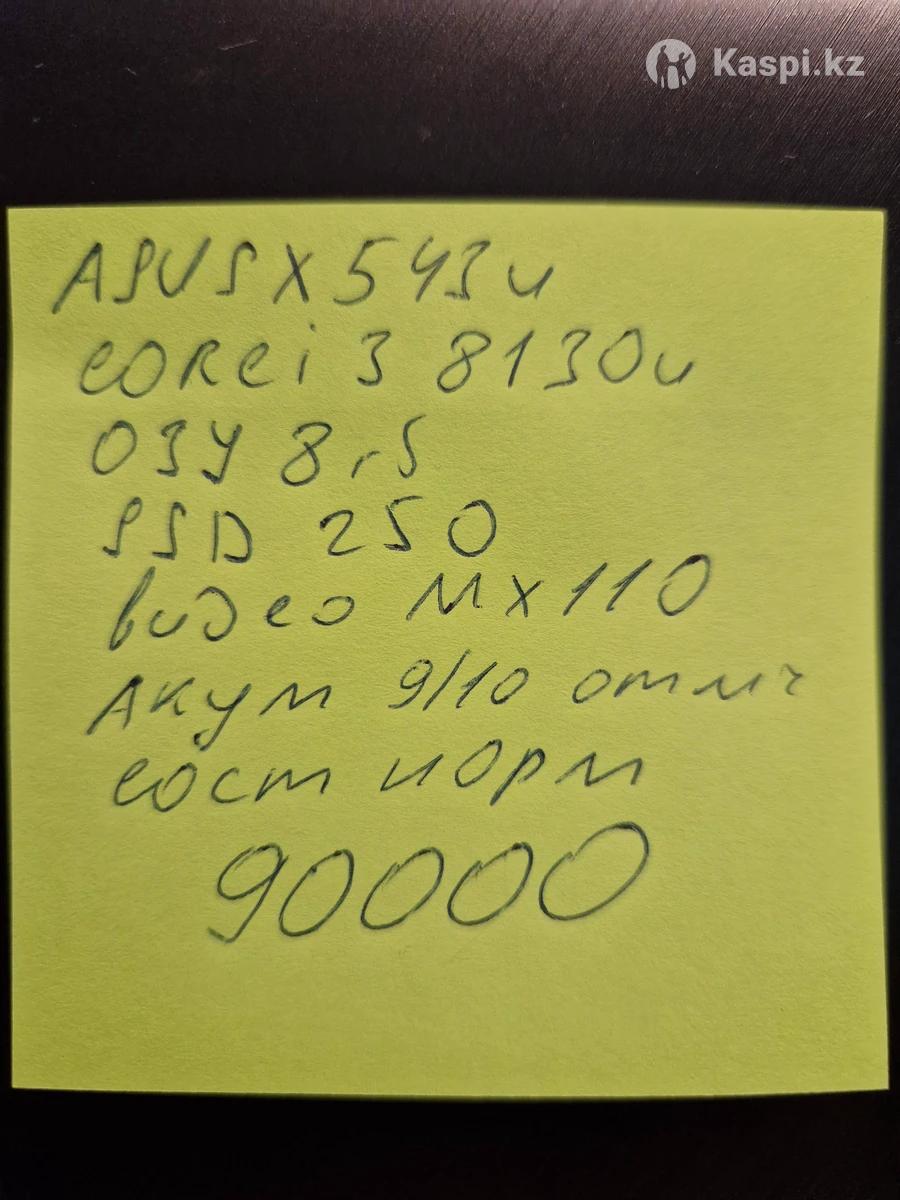 Kaspi.kz
ASUS X543u
CORei3 8130u
ОЗУ 8гб
SSD 250
видео Mx110
Акум 9/10 отлич
сост норм
90000